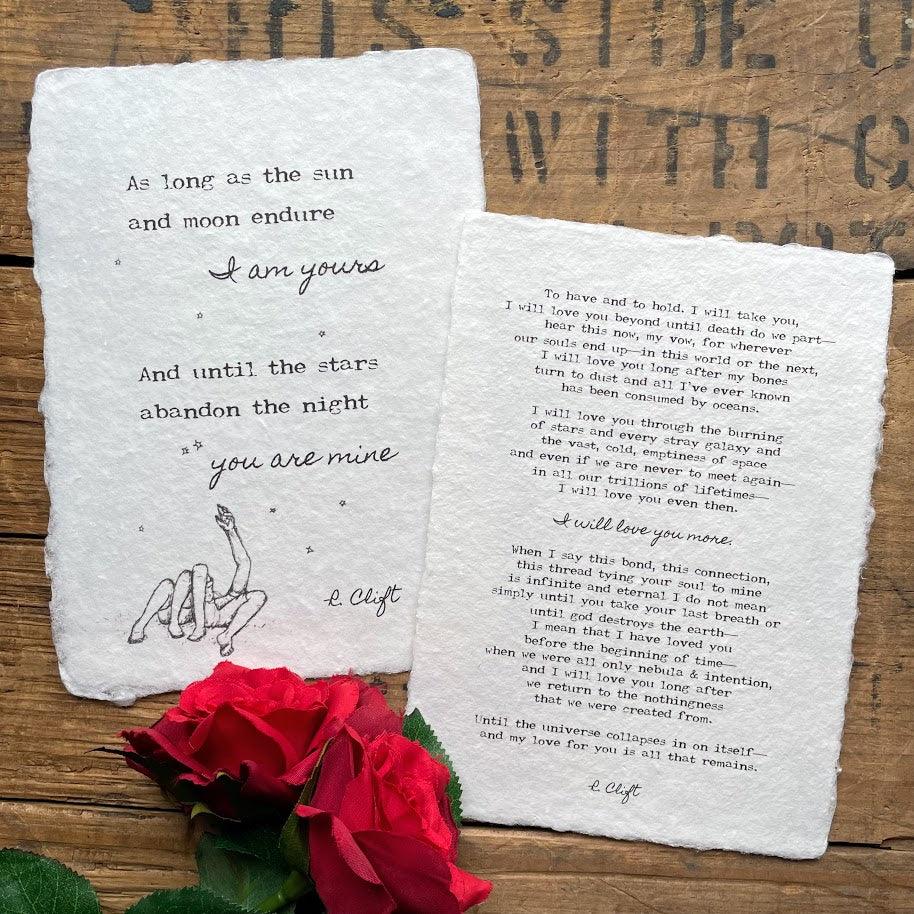 WITH
As long as the sun
and moon endure
I am yours
And until the stars
abandon the night
you are mine
R. Clift
To have and to hold. I will take you,
I will love you beyond until death do we part—
hear this now, my vow, for wherever
our souls end up—in this world or the next,
I will love you long after my bones
turn to dust and all I've ever known
has been consumed by oceans.
I will love you through the burning
of stars and every stray galaxy and
the vast, cold, emptiness of space
and even if we are never to meet again—
in all our trillions of lifetimes—
I will love you even then.
I will love you more.
When I say this bond, this connection,
this thread tying your soul to mine
is infinite and eternal I do not mean
simply until you take your last breath or
until god destroys the earth—
I mean that I have loved you
before the beginning of time—
when we were all only nebula & intention,
and I will love you long after
we return to the nothingness
that we were created from.
Until the universe collapses in on itself—
and my love for you is all that remains.
R. Clift